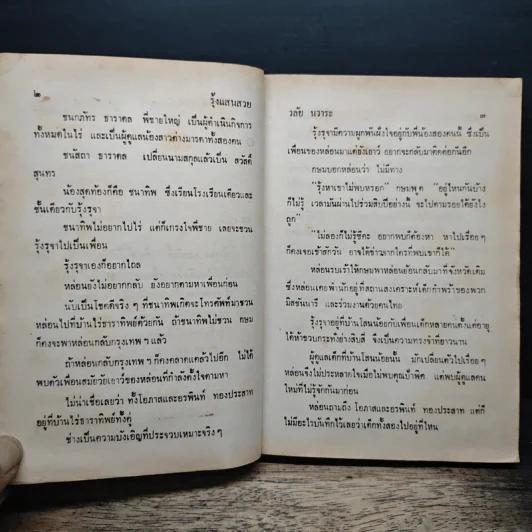 ๒
รุ้งแสนสวย
ชนกภัทร ธาราดล พี่ชายใหญ่ เป็นผู้ดำเนินกิจการ
ทั้งหมดในไร่ และเป็นผู้ดูแลน้องสาวต่างมารดาทั้งสองคน
ชนัสถา ธาราดล เปลี่ยนนามสกุลแล้วเป็น สวัสดิ์
สุนทร
น้องสุดท้องก็คือ ชนาทิพ ซึ่งเรียนโรงเรียนเดียวและ
ชั้นเดียวกับรุ้งรุจา
ชนาทิพไม่อยากไปไร่ แต่ก็เกรงใจพี่ชาย เลยจะชวน
รุ้งรุจาไปเป็นเพื่อน
รุ้งรุจาเองก็อยากไถล
หล่อนยังไม่อยากกลับ ยังอยากตามหาเพื่อนก่อน
นับเป็นโชคดีจริง ๆ ที่ชนาทิพเกิดจะโทรศัพท์มาชวน
หล่อนไปที่บ้านไร่ธาราทิพย์ด้วยกัน ถ้าชนาทิพไม่ชวน กษม
ก็คงจะพาหล่อนกลับกรุงเทพ ฯ แล้ว
ถ้าหล่อนกลับกรุงเทพ ฯ ก็คงคลาดแคล้วไปอีก ไม่ได้
พบตัวเพื่อนสมัยวัยเยาว์ของหล่อนที่กำลังตั้งใจตามหา
ไม่น่าเชื่อเลยว่า ทั้งโอภาสและอรพินท์ ทองประสาท
อยู่ที่บ้านไร่ธาราทิพย์ทั้งคู่
ช่างเป็นความบังเอิญที่ประจวบเหมาะจริง ๆ
วลัย นวาระ
๓
รุ้งรุจามีความผูกพันฝังใจอยู่กับพี่น้องสองคนนี้ ซึ่งเป็น
เพื่อนของหล่อนมาแต่ยังเยาว์ อยากจะกลับมาติดต่อกันอีก
กษมบอกหล่อนว่า ไม่มีทาง
"รุ้งหาเขาไม่พบหรอก" กษมพูด "อยู่ไหนกันบ้าง
ก็ไม่รู้ เวลามันผ่านไปร่วมสิบปีอย่างนี้ จะไปตามรอยได้ยังไง
ถูก"
"ไม่ลองก็ไม่รู้ซิคะ อยากพบก็ต้องหา หาไปเรื่อย ๆ
ก็คงเจอเข้าสักวัน อาจได้ข่าวจากใครที่พบเขาก็ได้"
หล่อนรบเร้าให้กษมพาหล่อนย้อนกลับมาที่จังหวัดเดิม
ซึ่งหล่อนเคยพำนักอยู่ที่สถานสงเคราะห์เด็กกำพร้าของพวก
มิสชันนารี และร่วมงานด้วยคนไทย
รุ้งรุจาอยู่ที่บ้านโสนน้อยกับเพื่อนเด็กหลายคนตั้งแต่อายุ
ได้ห้าขวบกระทั่งย่างสิบสี่ จึงเป็นความทรงจำที่ยาวนาน
ผู้ดูแลเด็กที่บ้านโสนน้อยนั้น มักเปลี่ยนตัวไปเรื่อย ๆ
หล่อนจึงไม่ประหลาดใจเมื่อไม่พบคุณป้าพิศ แต่พบผู้ดูแลคน
ใหม่ที่ไม่รู้จักกันมาก่อน
หล่อนถามถึง โอภาสและอรพินท์ ทองประสาท แต่ก็
ไม่มีอะไรบันทึกไว้เลยว่าเด็กทั้งสองไปอยู่ที่ไหน